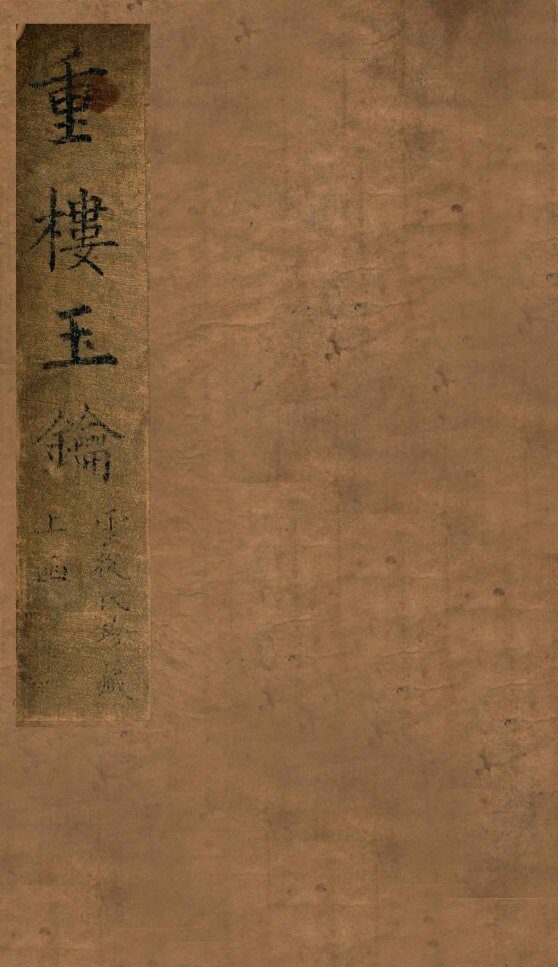 重樓玉鑰
雲氏珍藏
上函